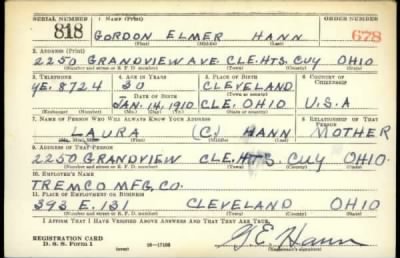 SERIAL NUMBER 1. NAME (Print) ORDER NUMBER
818 GORDON ELMER HANN 678
(First) (Middle) (Last)
2. ADDRESS (Print)
2250 GRANDVIEW AVE CLE.HTS. CUY OHIO
(Number and street or R. F. D. number) (Town) (County) (State)
3. TELEPHONE 4. AGE IN YEARS 5. PLACE OF BIRTH 6. COUNTRY OF CITIZENSHIP
YE. 8724 30 CLEVELAND
DATE OF BIRTH
JAN. 14, 1910 CLE. OHIO U.S.A
(Exchange) (Number) (Mo.) (Day) (Yr.) (State or country)
7. NAME OF PERSON WHO WILL ALWAYS KNOW YOUR ADDRESS 8. RELATIONSHIP OF THAT PERSON
LAURA (C.) HANN MOTHER
(First) (Middle) (Last)
9. ADDRESS OF THAT PERSON
2250 GRANDVIEW CLE.HTS. CUY OHIO.
(Number and street or R. F. D. number) (Town) (County) (State)
10. EMPLOYER'S NAME
TREMCO MFG. CO.
11. PLACE OF EMPLOYMENT OR BUSINESS
393 E. 131 CLEVELAND OHIO
(Number and street or R. F. D. number) (Town) (County) (State)
I AFFIRM THAT I HAVE VERIFIED ABOVE ANSWERS AND THAT THEY ARE TRUE.
REGISTRATION CARD
D. S. S. Form 1 (over) G. E. Hann
(Registrant's signature)